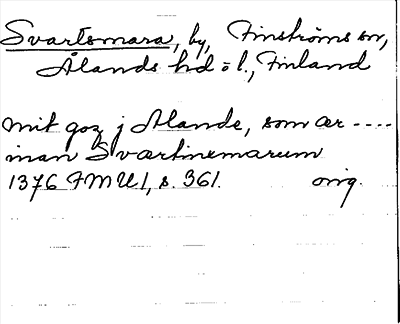 Svartsmara, by, Finströms sn,
Ålands hd o l., Finland
mit goz j Alande, som ær ----
innan Sværtinemarum
1376 FMU 1, s. 361. orig.